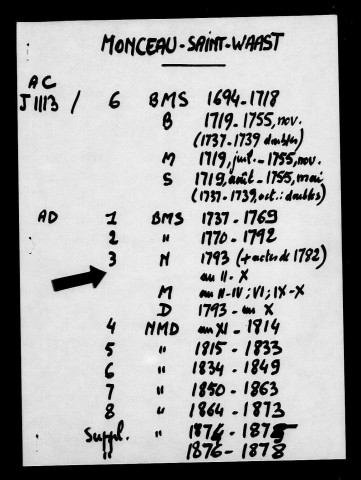 MONCEAU-SAINT-WAAST
AC
J 1113 / 6 BMS 1694-1718
B 1719-1755, nov.
(1737-1739 doubles)
M 1719, juil.-1755, nov.
S 1719, août-1755, mai
(1737-1739, oct.: doubles)
AD 1 BMS 1737-1769
2 " 1770-1792
3 N 1793 (+ actes de 1792)
an II-X
M an II-IV; VI; IX-X
D 1793-an X
4 NMD an XI-1814
5 " 1815-1833
6 " 1834-1849
7 " 1850-1863
8 " 1864-1873
Suppl. " 1874-1875
" 1876-1878